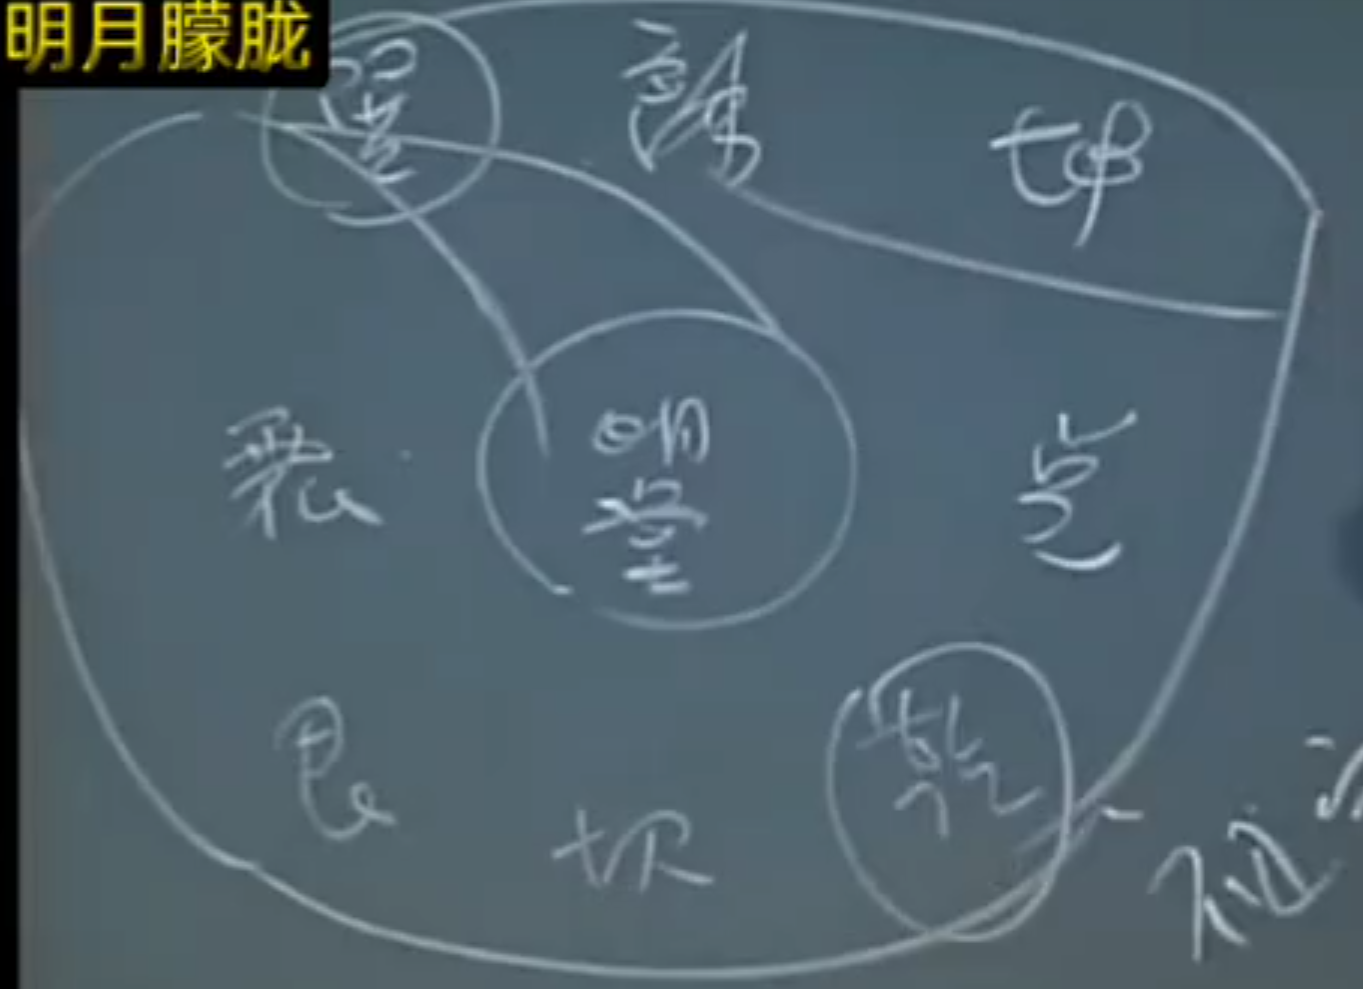 明月朦胧
巽
離
坤
震
明
堂
兌
艮
坎
乾